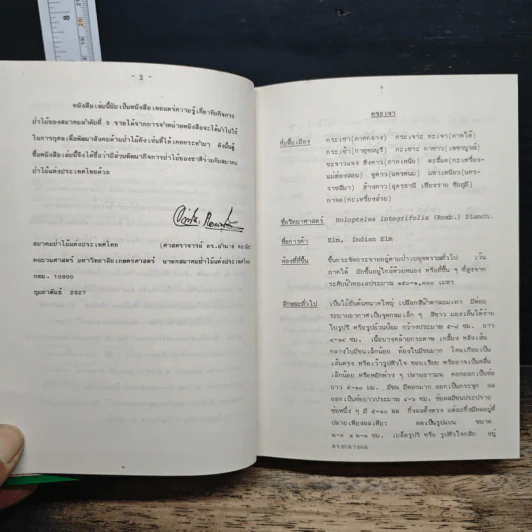 - 3 -
หนังสือเล่มนี้นับเป็นหนังสือเผยแพร่ความรู้เกี่ยวกับกิจการ
ป่าไม้ของสมาคมลำดับที่ 5 รายได้จากการจำหน่ายหนังสือจะได้นำไปใช้
ในการกุศลเพื่อพัฒนาสังคมด้านป่าไม้ดังเช่นที่ได้เคยกระทำมา ดังนั้นผู้
ซื้อหนังสือเล่มนี้จึงได้ชื่อว่ามีส่วนพัฒนากิจการป่าไม้ของชาติร่วมกับสมาคม
ป่าไม้แห่งประเทศไทยด้วย
สมาคมป่าไม้แห่งประเทศไทย (ศาสตราจารย์ ดร.อำนวย คอวนิช)
คณะวนศาสตร์ มหาวิทยาลัยเกษตรศาสตร์ นายกสมาคมป่าไม้แห่งประเทศไทย
กทม. 10900
กุมภาพันธ์ 2527
กระเจา
ชื่อพื้นเมือง กระเชา (ภาคกลาง) กระเจาะ ขะเจา (ภาคใต้)
กระเช้า (กาญจนบุรี) กะเซาะ กาซาว (เพชรบูรณ์)
ขะจาวแจง ฮังคาว (ภาคเหนือ)
แม่ฮ่องสอน) พูคาว (นครพนม) มหาเหนียว (นคร-
ราชสีมา) ฮ้างคาว (อุดรธานี เชียงราย ชัยภูมิ)
ชื่อวิทยาศาสตร์ Holoptelea integrifolia (Roxb.) Planch.
ชื่อการค้า Elm, Indian Elm
ท้องที่ที่ขึ้น ขึ้นกระจัดกระจายอยู่ตามป่าเบญจพรรณทั่วไป เว้น
ภาคใต้ มักขึ้นอยู่ใกล้ห้วยหนอง หรือที่ชื้น ๆ ที่สูงจาก
ระดับน้ำทะเลประมาณ
ลักษณะทั่วไป เป็นไม้ยืนต้นขนาดใหญ่ เปลือกสีน้ำตาลอมเทา มีต่อม
ระบายอากาศเป็นจุดกลมเล็ก ๆ สีขาว มองเห็นได้ง่าย
ใบรูปรี หรือรูปป้อมป้อม กว้างประมาณ ยาว
ซม. เนื้อบางคล้ายกระดาษ เกลี้ยง หลังเส้น
กลางใบมีขนเล็กน้อย ท้องใบมีขนมาก โคนเกือบเป็น
เส้นตรง หรือเว้ารูปหัวใจ ขอบเรียบ หรืออาจเป็นคลื่น
เล็กน้อย หรือหยักห่าง ๆ ปลายยาวมน ดอกออกเป็นช่อ
ยาว มม. มีขน มีดอกมาก ออกเป็นกระจุก ผล
ออกเป็นช่อยาวประมาณ ซม. ช่อผลมีขนประปราย
ช่อหนึ่ง ๆ มี ผล
ปลายเพียงผลเดียว ผลเป็นรูปแบน ขนาด
ซม. เมล็ดรูปรี หรือ รูปหัวใจกลับ อยู่
ตรงกลางผล